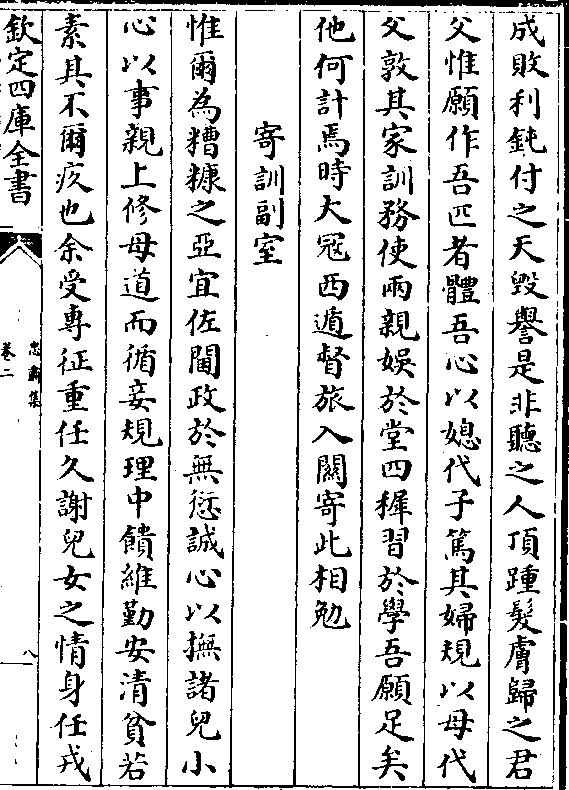 成敗利鈍付之天毀譽是非聽之人頂踵髮膚歸之君
父惟願作吾匹者體吾心以媳代子篤其婦規以母代
父敦其家訓務使兩親娛於堂四穉習於學吾願足矣
他何計焉時大冦西遁督旅入關寄此相勉
寄訓副室
惟爾為糟糠之亞宜佐閫政於無愆誠心以撫諸兒小
心以事親上修母道而循妾規理中饋維勤安清貧若
素其不爾疚也余受專征重任久謝兒女之情身任戎
欽定四庫全書
忠肅集
卷二
八